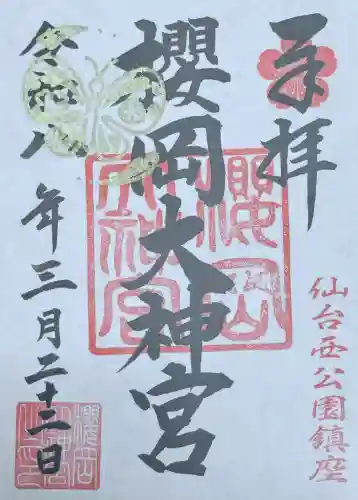 奉拝
仙台西公園鎮座
櫻岡大神宮
櫻岡
大神宮
令和八年三月二十二日